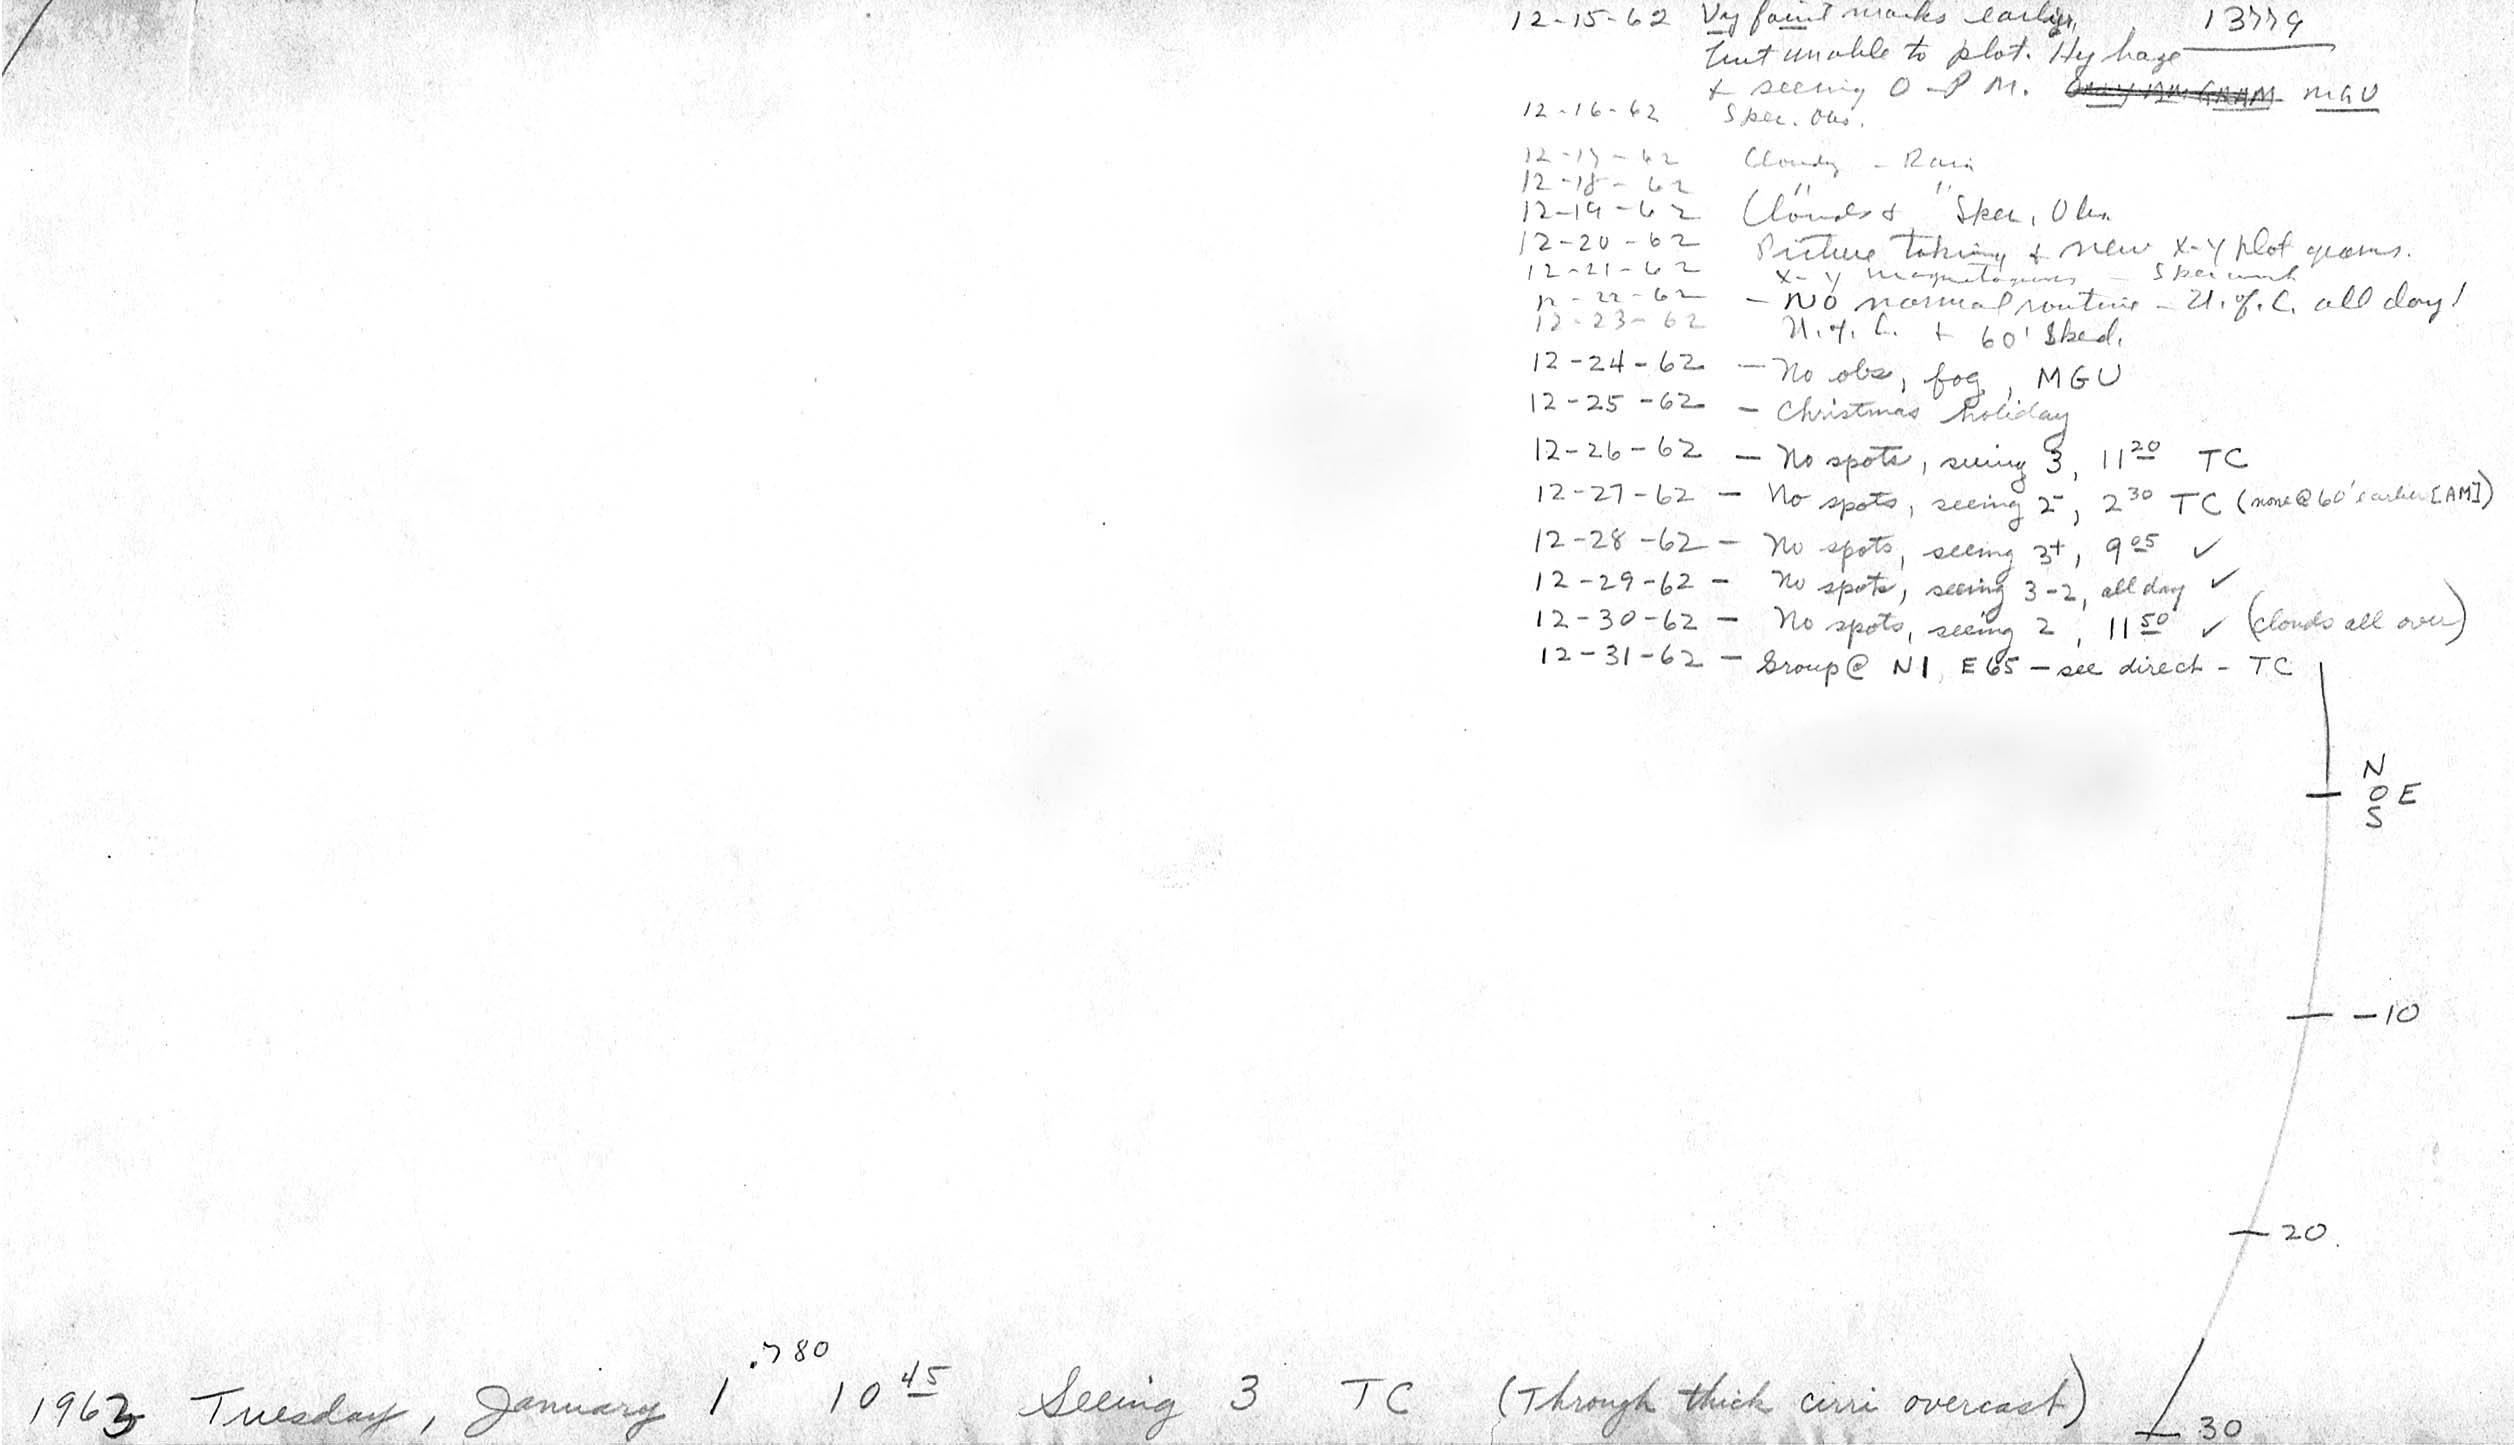 12-15-62 Vy faint marks earlier, 13779
but unable to plot. Hy haze
+ seeing 0 - P.M. MGU
12-16-62 Spec. Obs.
12-17-62 Cloudy - Rain
12-18-62 " "
12-19-62 Clouds + Spec. Obs.
12-20-62 Picture taking + new X-Y plot grams.
12-21-62 X-Y magnetograms - Spec work
12-22-62 - No normal routine - U. of. C. all day!
12-23-62 U. of. C. + 60' Sked.
12-24-62 - No obs, fog, MGU
12-25-62 - Christmas holiday
12-26-62 - No spots, seeing 3, 11 20 TC
12-27-62 - No spots, seeing 2-, 2 30 TC (none @ 60' earlier [AM])
12-28-62 - No spots, seeing 3+, 9 05 ✓
12-29-62 - No spots, seeing 3-2, all day ✓
12-30-62 - No spots, seeing 2, 11 50 ✓ (clouds all over)
12-31-62 - Group @ N1, E65 - see direct - TC
N
0 E
S
-10
20
1963 Tuesday, January 1.780 10 45 Seeing 3 TC (Through thick cirri overcast)
30